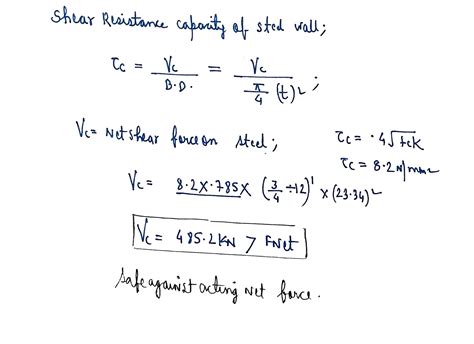 Shear Resistance capacity of steel wall;
τc = Vc / B.D. = Vc / π/4 (t)² ;
Vc = Net shear force on steel;
τc = .4√fck
τc = 8.2 N/mm²
Vc = 8.2 × .785 × (3/4 ÷ 12)¹ × (23.34)²
Vc = 485.2 KN > Fnet
safe against acting net force.